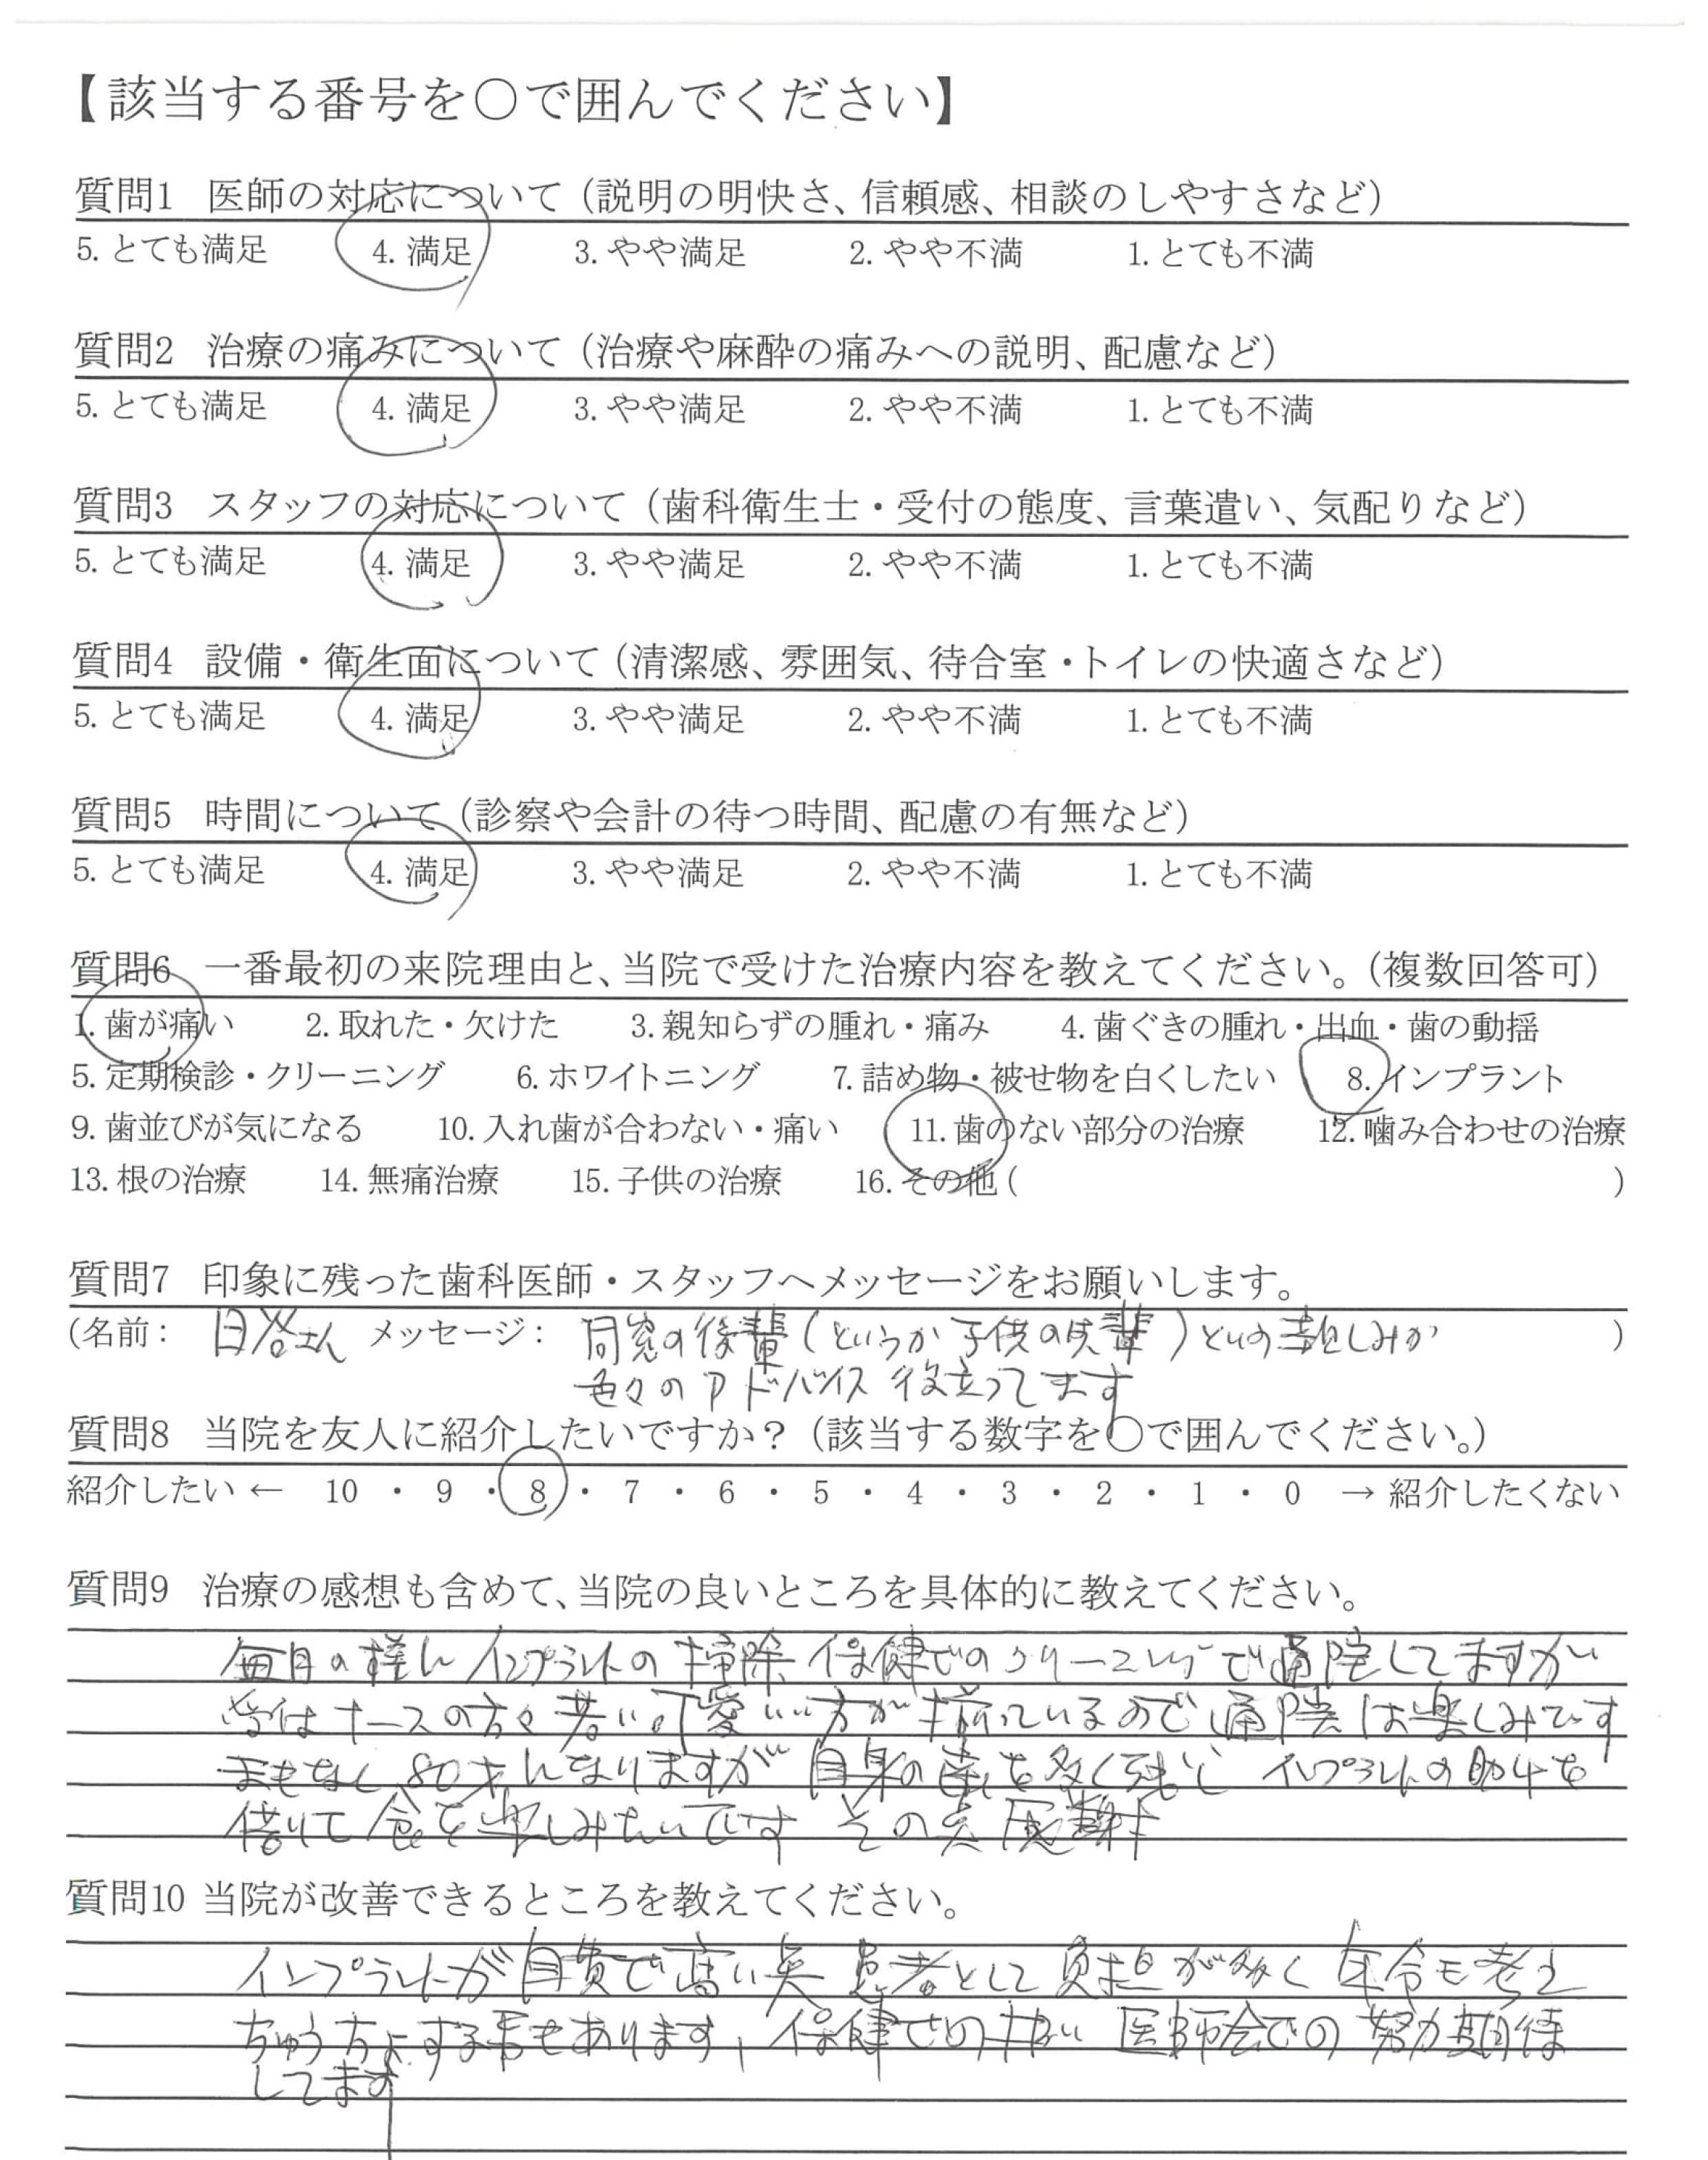 【該当する番号を〇で囲んでください】
質問1 医師の対応について（説明の明快さ、信頼感、相談のしやすさなど）
5. とても満足 4. 満足 3. やや満足 2. やや不満 1. とても不満
質問2 治療の痛みについて（治療や麻酔の痛みへの説明、配慮など）
5. とても満足 4. 満足 3. やや満足 2. やや不満 1. とても不満
質問3 スタッフの対応について（歯科衛生士・受付の態度、言葉遣い、気配りなど）
5. とても満足 4. 満足 3. やや満足 2. やや不満 1. とても不満
質問4 設備・衛生面について（清潔感、雰囲気、待合室・トイレの快適さなど）
5. とても満足 4. 満足 3. やや満足 2. やや不満 1. とても不満
質問5 時間について（診察や会計の待つ時間、配慮の有無など）
5. とても満足 4. 満足 3. やや満足 2. やや不満 1. とても不満
質問6 一番最初の来院理由と、当院で受けた治療内容を教えてください。（複数回答可）
1. 歯が痛い 2. 取れた・欠けた 3. 親知らずの腫れ・痛み 4. 歯ぐきの腫れ・出血・歯の動揺
5. 定期検診・クリーニング 6. ホワイトニング 7. 詰め物・被せ物を白くしたい 8. インプラント
9. 歯並びが気になる 10. 入れ歯が合わない・痛い 11. 歯のない部分の治療 12. 噛み合わせの治療
13. 根の治療 14. 無痛治療 15. 子供の治療 16. その他 ( )
質問7 印象に残った歯科医師・スタッフへメッセージをお願いします。
(名前： さん メッセージ： 同窓の後輩（というか子供の先輩）という親しみか )
色々のアドバイス役立ってます
質問8 当院を友人に紹介したいですか？（該当する数字を〇で囲んでください。）
紹介したい ← 10 ・ 9 ・ 8 ・ 7 ・ 6 ・ 5 ・ 4 ・ 3 ・ 2 ・ 1 ・ 0 → 紹介したくない
質問9 治療の感想も含めて、当院の良いところを具体的に教えてください。
毎月の様に インプラントの掃除 保健でのクリーニングで通院してますが
ナースの方々若い可愛いい方が揃っているので通院は楽しみです
まもなく80才になりますが 自身の歯を多く残し インプラントの助けを
借りて食を楽しみたいです その点感謝
質問10 当院が改善できるところを教えてください。
インプラントが自費で高い点 患者として負担が多く 年令も考え
ちゅうちょする事もあります、保健での 医師会での努力期待
してます